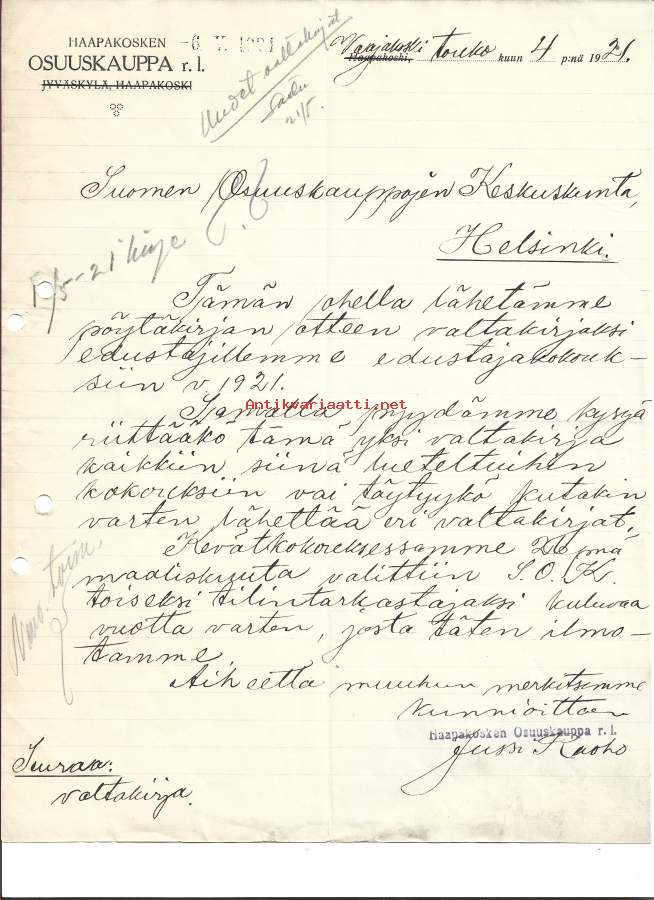 HAAPAKOSKEN
OSUUSKAUPPA r. l.
JYVÄSKYLÄ, HAAPAKOSKI
-6. V. 1921
Uudet valtakirjat
saatu
21/5.
Vaajakoski
Haapakoski, touko kuun 4 p:nä 1921.
Suomen Osuuskauppojen Keskuskunta,
Helsinki.
5/5-21 kirje
Tämän ohella lähetämme
pöytäkirjan otteen valtakirjaksi
edustajillemme edustajakokouk-
siin v. 1921.
Antikvariaatti.net
Samalla pyydämme kysyä
riittääkö tämä yksi valtakirja
kaikkiin siinä lueteltuihin
kokouksiin vai täytyykö kutakin
varten lähettää eri valtakirjat.
Kevätkokouksessamme 20 pnä
maaliskuuta valittiin S.O.K.
toiseksi tilintarkastajaksi kuluvaa
vuotta varten, josta täten ilmo-
tamme.
Aiheetta muuhun merkitsemme
kunnioittaen
Haapakosken Osuuskauppa r. l.
Jussi Raoho
Seuraa:
valtakirja.